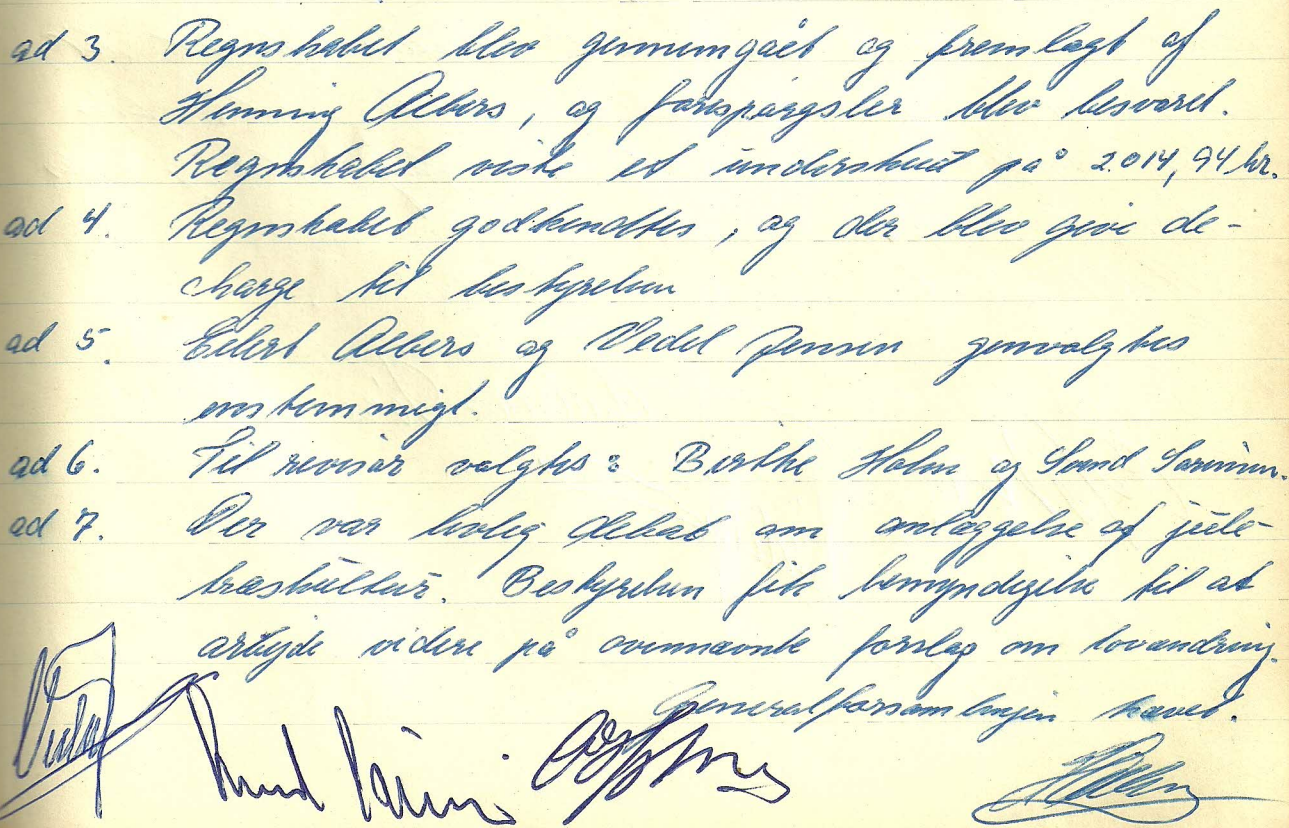 ad 3. Regnskabet blev gennemgået og fremlagt af
Henning Albers, og forespørgsler blev besvaret.
Regnskabet viste et underskud på 2.014,94 kr.
ad 4. Regnskabet godkendtes, og der blev give de-
charge til bestyrelsen
ad 5. Eilert Albers og Vedel Jensen genvalgtes
enstemmigt.
ad 6. Til revisor valgtes: Birthe Holm og Svend
ad 7. Der var livlig debat om anlæggelse af jule-
træskultur. Bestyrelsen fik bemyndigelse til at
arbejde videre på ovennævnte forslag om lovændring.
Generalforsamlingen hævet.